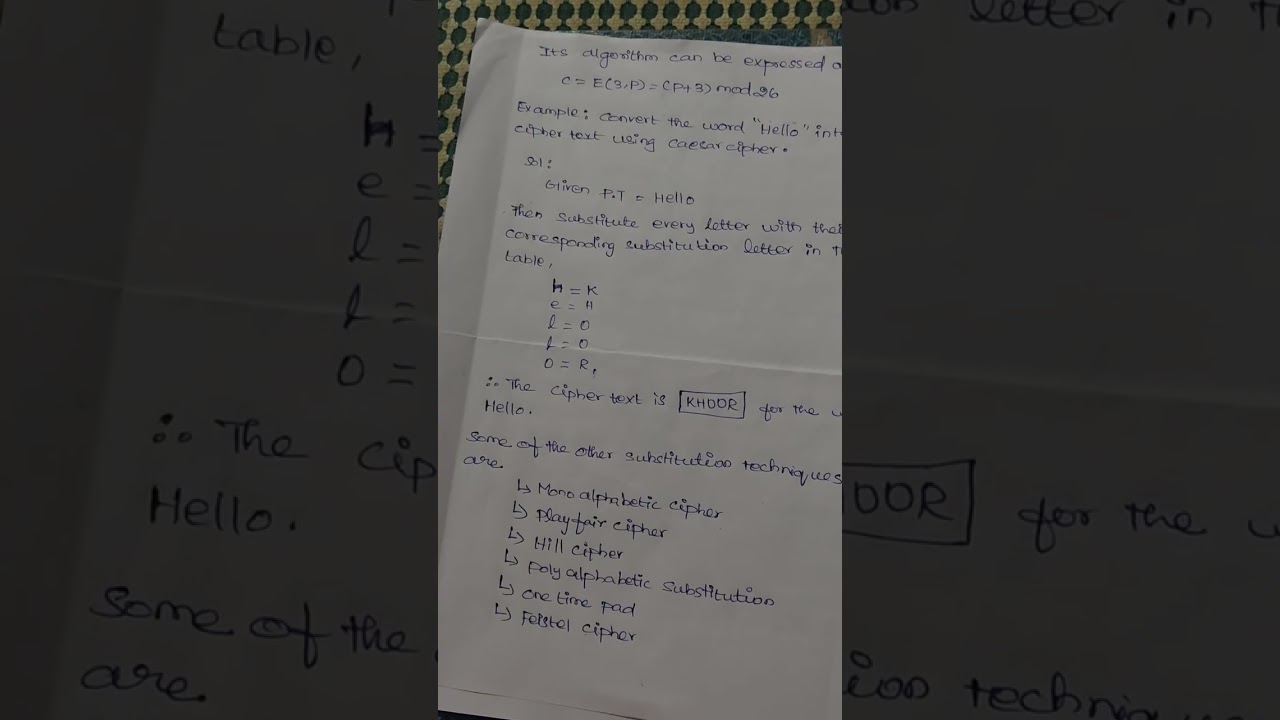 Its algorithm can be expressed a
C = E(3,P) = (P+3) mod 26
Example: convert the word "Hello" int
cipher text using caesar cipher.
Sol:
Given P.T = Hello
Then substitute every letter with thei
corresponding substitution letter in t
table,
H = K
e = H
l = O
l = O
o = R,
∴ The cipher text is KHOOR for the w
Hello.
Some of the other substitution techniques
are
↳ Mono alphabetic cipher
↳ Playfair cipher
↳ Hill cipher
↳ Poly alphabetic substitution
↳ One time pad
↳ Feistel cipher